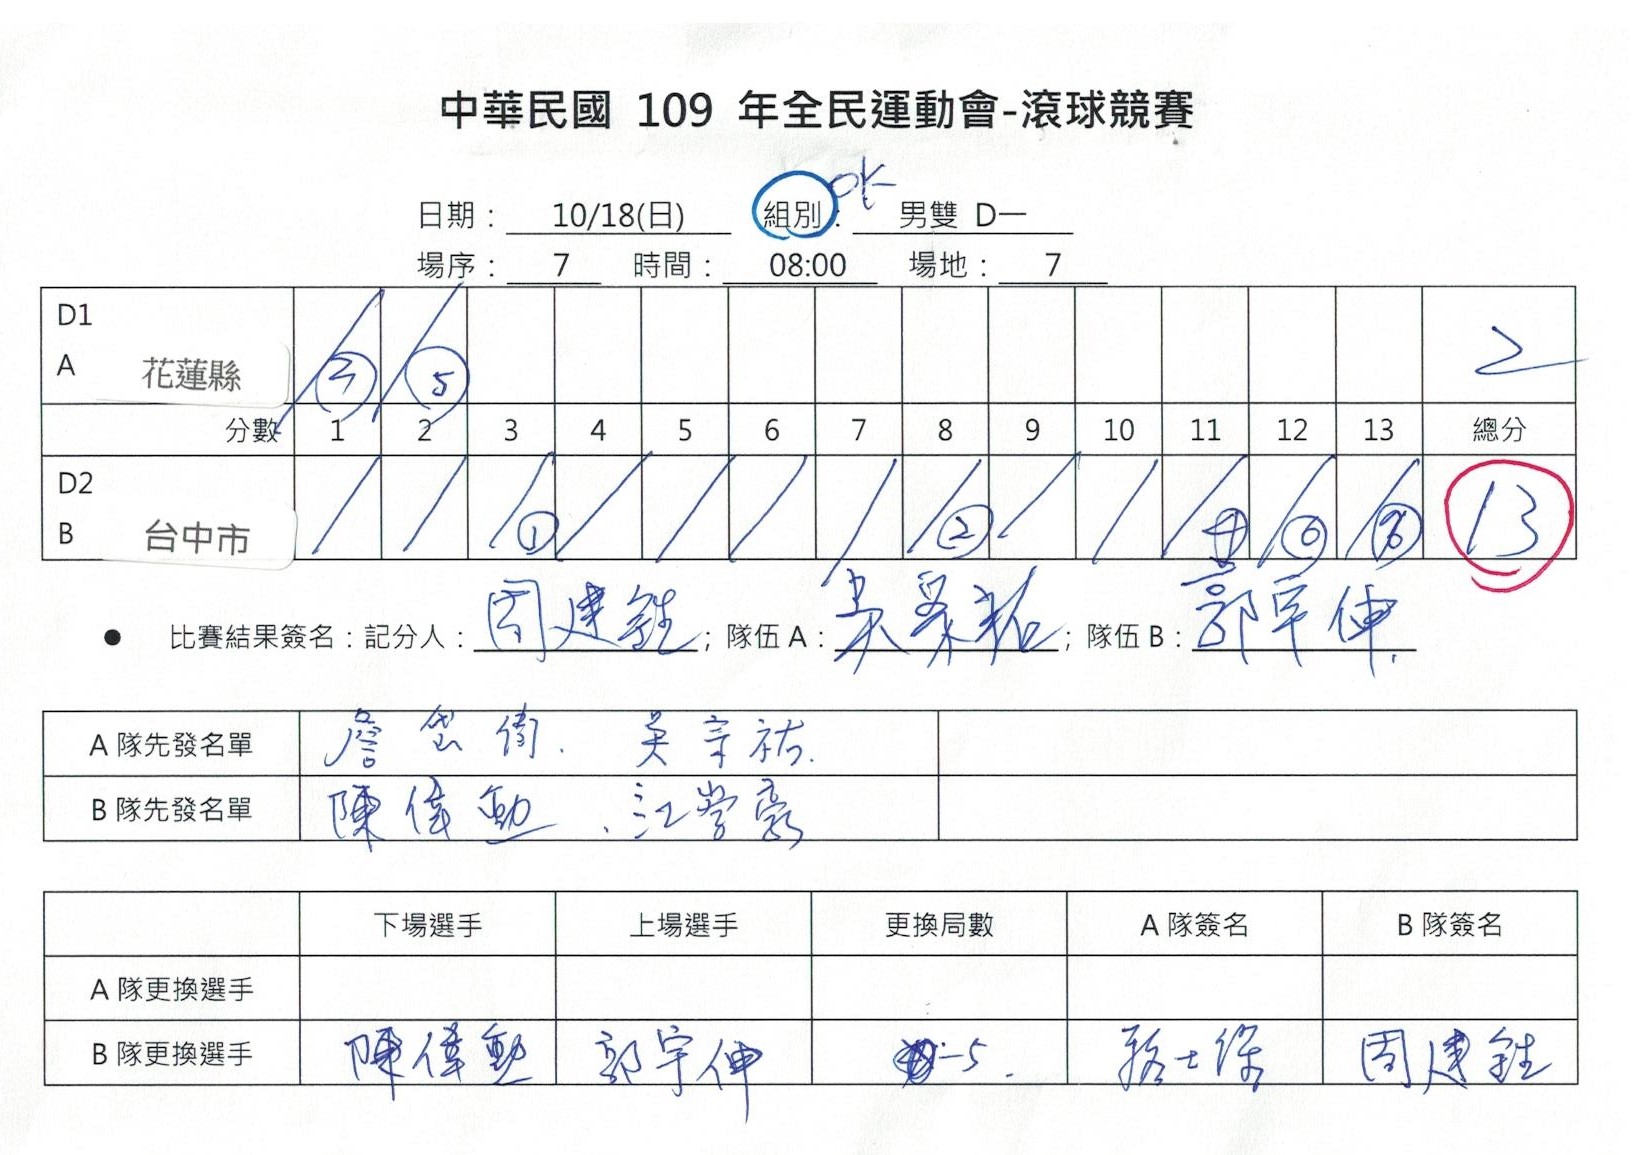 中華民國 109 年全民運動會-滾球競賽
OK
日期： 10/18(日) 組別： 男雙 D一
場序： 7 時間： 08:00 場地： 7
D1
A 花蓮縣 5 2
分數 1 2 3 4 5 6 7 8 9 10 11 12 13 總分
D2
B 台中市 1 2 4 6 13
● 比賽結果簽名：記分人：周建銓；隊伍 A：吳；隊伍 B：郭宇伸
A 隊先發名單 詹 吳宗祐
B 隊先發名單 陳偉勳 江學豪
下場選手 上場選手 更換局數 A 隊簽名 B 隊簽名
A 隊更換選手
B 隊更換選手 陳偉勳 郭宇伸 -5 周建銓